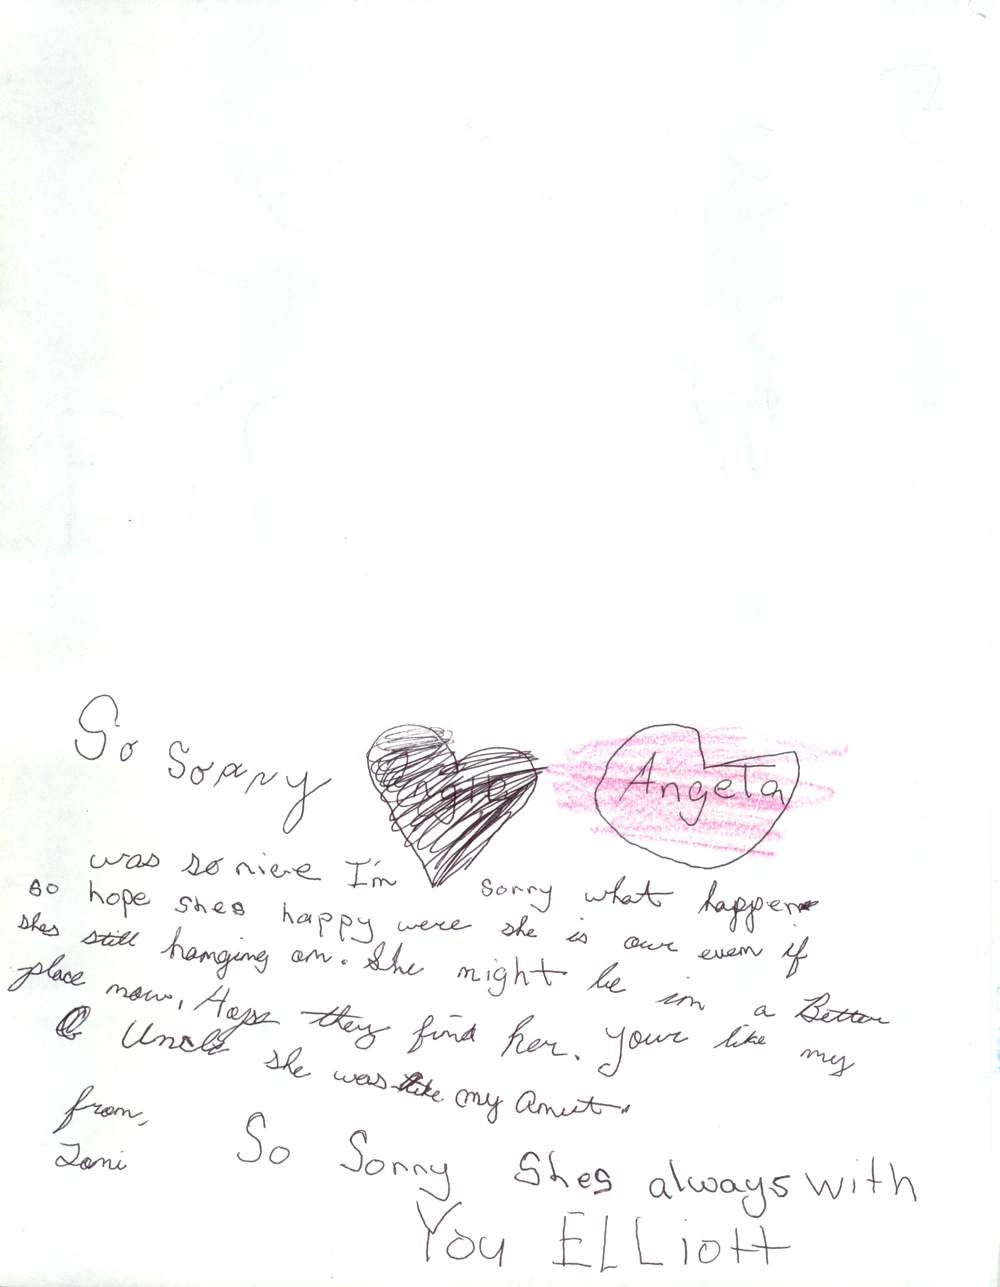 So Sorry Angie Angela
was so niece I'm sorry what happen
so hope shes happy were she is our even if
shes still hanging on. She might be in a Better
place now, Hope they find her. Your like my
Uncle she was like my Anut.
from,
So Sorry Shes always with
You ELLiott